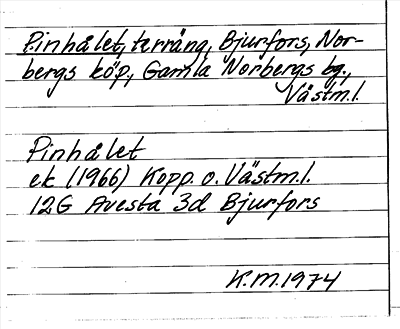 Pinhålet, terräng, Bjurfors, Nor-
bergs köp, Gamla Norbergs bg.,
Västm.l.
Pinhålet
ek (1966) Kopp. o. Västm.l.
12G Avesta 3d Bjurfors
K.M.1974